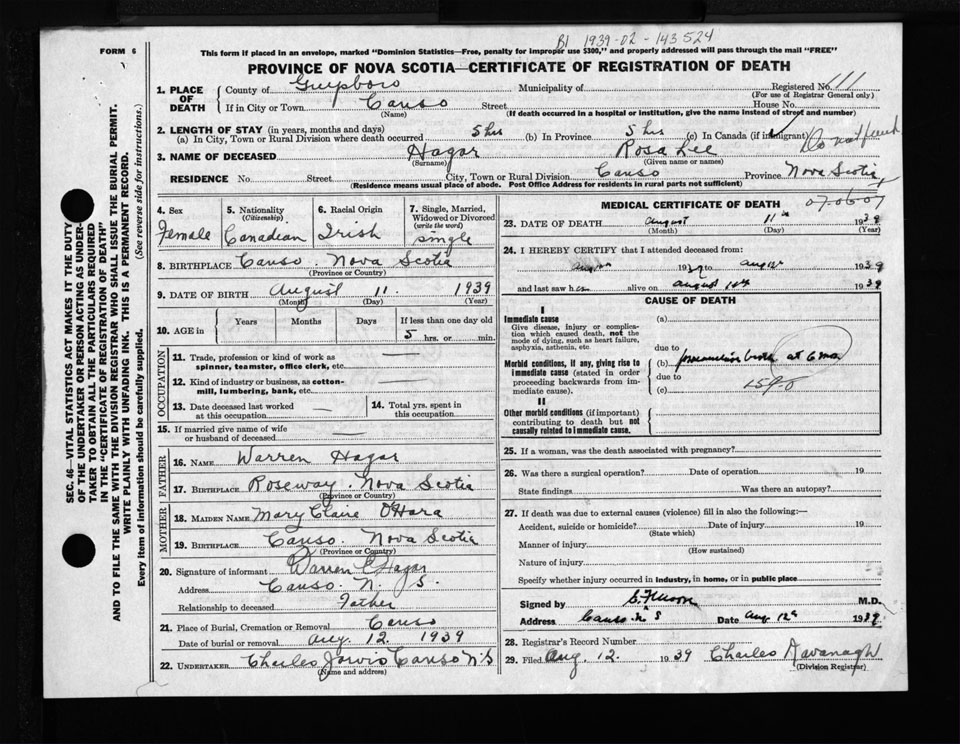 B1 1939-02-143524
FORM 6
This form if placed in an envelope, marked "Dominion Statistics—Free, penalty for improper use $300," and properly addressed will pass through the mail "FREE"
PROVINCE OF NOVA SCOTIA—CERTIFICATE OF REGISTRATION OF DEATH
SEC. 46—VITAL STATISTICS ACT MAKES IT THE DUTY
OF THE UNDERTAKER OR PERSON ACTING AS UNDER-
TAKER TO OBTAIN ALL THE PARTICULARS REQUIRED
IN THE "CERTIFICATE OF REGISTRATION OF DEATH"
AND TO FILE THE SAME WITH THE DIVISION REGISTRAR WHO SHALL ISSUE THE BURIAL PERMIT.
WRITE PLAINLY WITH UNFADING INK. THIS IS A PERMANENT RECORD.
Every item of information should be carefully supplied. (See reverse side for instructions.)
1. PLACE OF DEATH
County of Guysboro Municipality of Registered No. 111
(For use of Registrar General only)
If in City or Town Canso Street House No.
(Name) (If death occurred in a hospital or institution, give the name instead of street and number)
2. LENGTH OF STAY (in years, months and days)
(a) In City, Town or Rural Division where death occurred 5 hrs (b) In Province 5 hrs (c) In Canada (if immigrant)
Do not punch
3. NAME OF DECEASED Hagar Rosa Lee
(Surname) (Given name or names)
RESIDENCE No. Street City, Town or Rural Division Canso Province Nova Scotia
(Residence means usual place of abode. Post Office Address for residents in rural parts not sufficient)
4. Sex Female
5. Nationality (Citizenship) Canadian
6. Racial Origin Irish
7. Single, Married, Widowed or Divorced (write the word) Single
8. BIRTHPLACE Canso Nova Scotia
(Province or Country)
9. DATE OF BIRTH August 11. 1939
(Month) (Day) (Year)
10. AGE in Years Months Days If less than one day old
5 hrs. or min.
OCCUPATION
11. Trade, profession or kind of work as
spinner, teamster, office clerk, etc. —
12. Kind of industry or business, as cotton-
mill, lumbering, bank, etc. —
13. Date deceased last worked
at this occupation —
14. Total yrs. spent in
this occupation —
15. If married give name of wife
or husband of deceased —
FATHER
16. NAME Warren Hagar
17. BIRTHPLACE Roseway. Nova Scotia
(Province or Country)
MOTHER
18. MAIDEN NAME Mary Claire O'Hara
19. BIRTHPLACE Canso. Nova Scotia
(Province or Country)
20. Signature of informant Warren E Hagar
Address Canso. N. S.
Relationship to deceased Father
21. Place of Burial, Cremation or Removal Canso
Date of burial or removal Aug. 12. 1939
22. UNDERTAKER Charles Jarvis Canso N.S
(Name and address)
MEDICAL CERTIFICATE OF DEATH 07-06-07
23. DATE OF DEATH August 11th 1939
(Month) (Day)
24. I HEREBY CERTIFY that I attended deceased from:
1939 to Aug 12th 1939
and last saw h alive on August 1939
CAUSE OF DEATH
I
Immediate cause
Give disease, injury or complica-
tion which caused death, not the
mode of dying, such as heart failure,
asphyxia, asthenia, etc.
(a)
due to
Morbid conditions, if any, giving rise to
immediate cause (stated in order
proceeding backwards from im-
mediate cause).
(b) premature birth at 6 mos
due to
(c)
II
Other morbid conditions (if important)
contributing to death but not
causally related to immediate cause.
25. If a woman, was the death associated with pregnancy?
26. Was there a surgical operation? Date of operation 19
State findings Was there an autopsy?
27. If death was due to external causes (violence) fill in also the following:—
Accident, suicide or homicide? Date of injury 19
(State which)
Manner of injury
(How sustained)
Nature of injury
Specify whether injury occurred in industry, in home, or in public place
Signed by M.D.
Address Canso N S Date Aug 12th 1939
28. Registrar's Record Number
29. Filed Aug. 12. 1939 Charles Kavanagh
(Division Registrar)